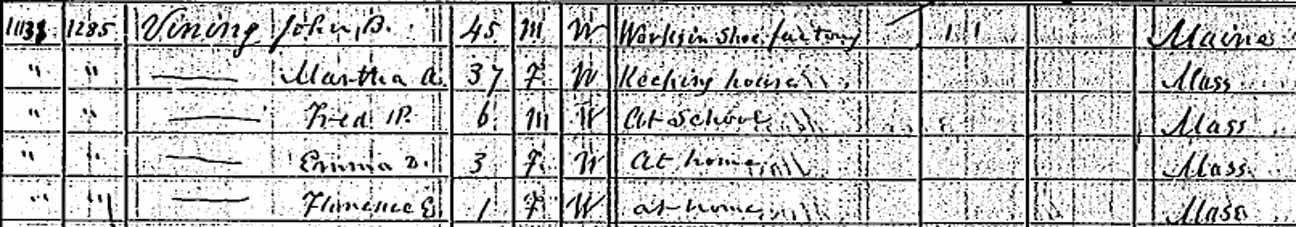 1285 Vining John B. 45 M W Works in Shoe factory Maine
" " — Martha A. 37 F W Keeping house Mass
" " — Fred P. 6 M W At School Mass
" " — Emma D. 3 F W At home Mass
" " — Florence E. 1 F W at home Mass